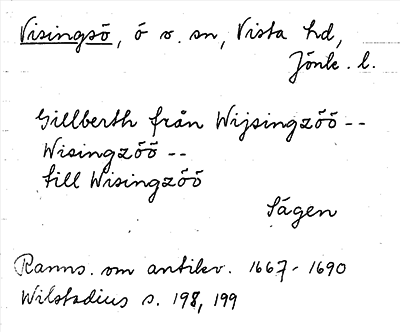 Visingsö, ö o. sn, Vista hd,
Jönk. l.
Gillberth från Wijsingzöö --
Wisingzöö --
till Wisingzöö
Sägen
Ranns. om antikv. 1667-1690
Wilstadius s. 198, 199